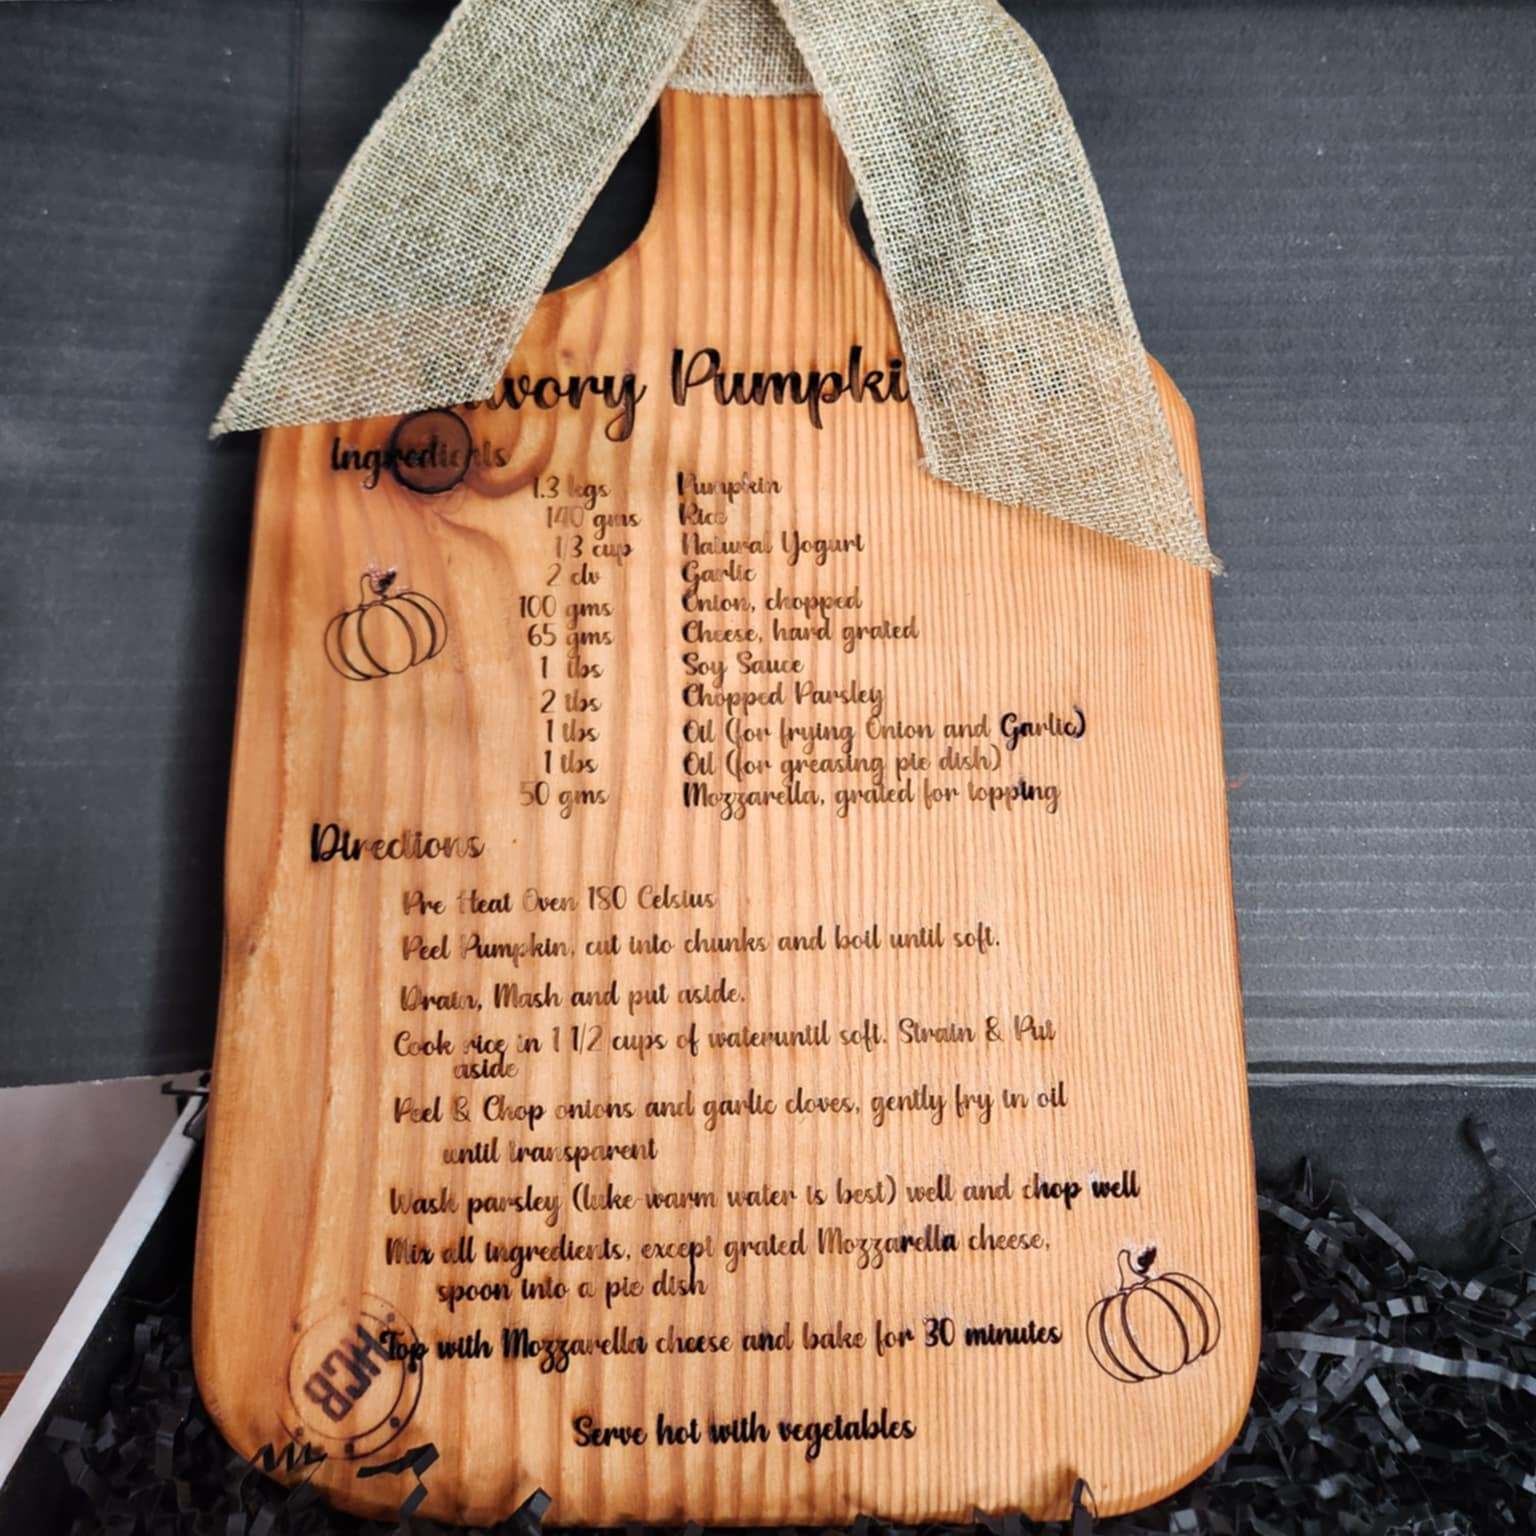 Pumpki
Ingredients
1.3 kgs Pumpkin
140 gms Rice
1/3 cup Natural Yogurt
2 clv Garlic
100 gms Onion, chopped
65 gms Cheese, hard grated
1 tbs Soy Sauce
2 tbs Chopped Parsley
1 tbs Oil (for frying Onion and Garlic)
1 tbs Oil (for greasing pie dish)
50 gms Mozzarella, grated for topping
Directions
Pre Heat Oven 180 Celsius
Peel Pumpkin, cut into chunks and boil until soft.
Drain, Mash and put aside.
Cook rice in 1 1/2 cups of wateruntil soft. Strain & Put
aside
Peel & Chop onions and garlic cloves, gently fry in oil
until transparent
Wash parsley (luke-warm water is best) well and chop well
Mix all ingredients, except grated Mozzarella cheese,
spoon into a pie dish
Top with Mozzarella cheese and bake for 30 minutes
Serve hot with vegetables